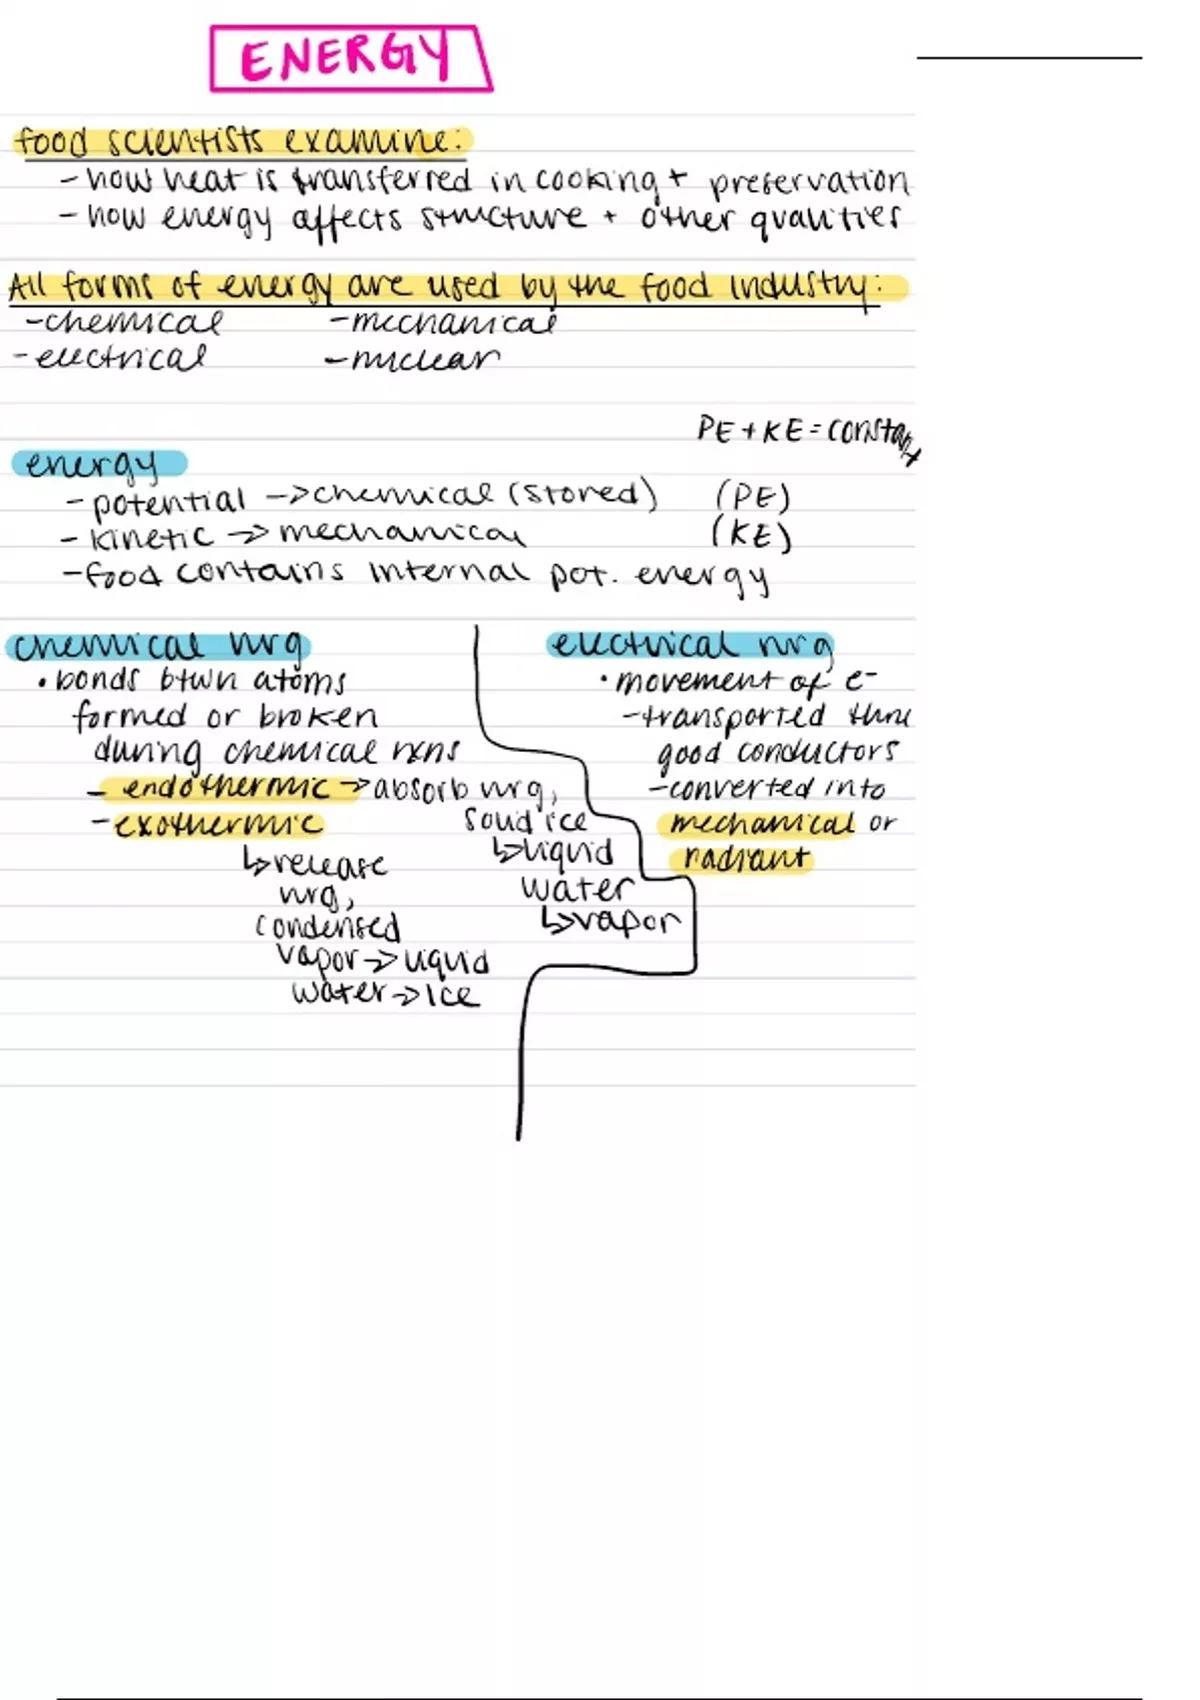 ENERGY
food scientists examine:
- how heat is transferred in cooking + preservation
- how energy affects structure + other qualities
All forms of energy are used by the food industry:
- chemical - mechanical
- electrical - nuclear
PE + KE = constant
energy
- potential -> chemical (stored) (PE)
- kinetic -> mechanical (KE)
- food contains internal pot. energy
chemical nrg
• bonds btwn atoms
formed or broken
during chemical rxns
- endothermic -> absorb nrg,
solid ice
↳ liquid
water
↳ vapor
- exothermic
↳ release
nrg,
condensed
vapor -> liquid
water -> ice
electrical nrg
• movement of e-
- transported thru
good conductors
- converted into
mechanical or
radiant